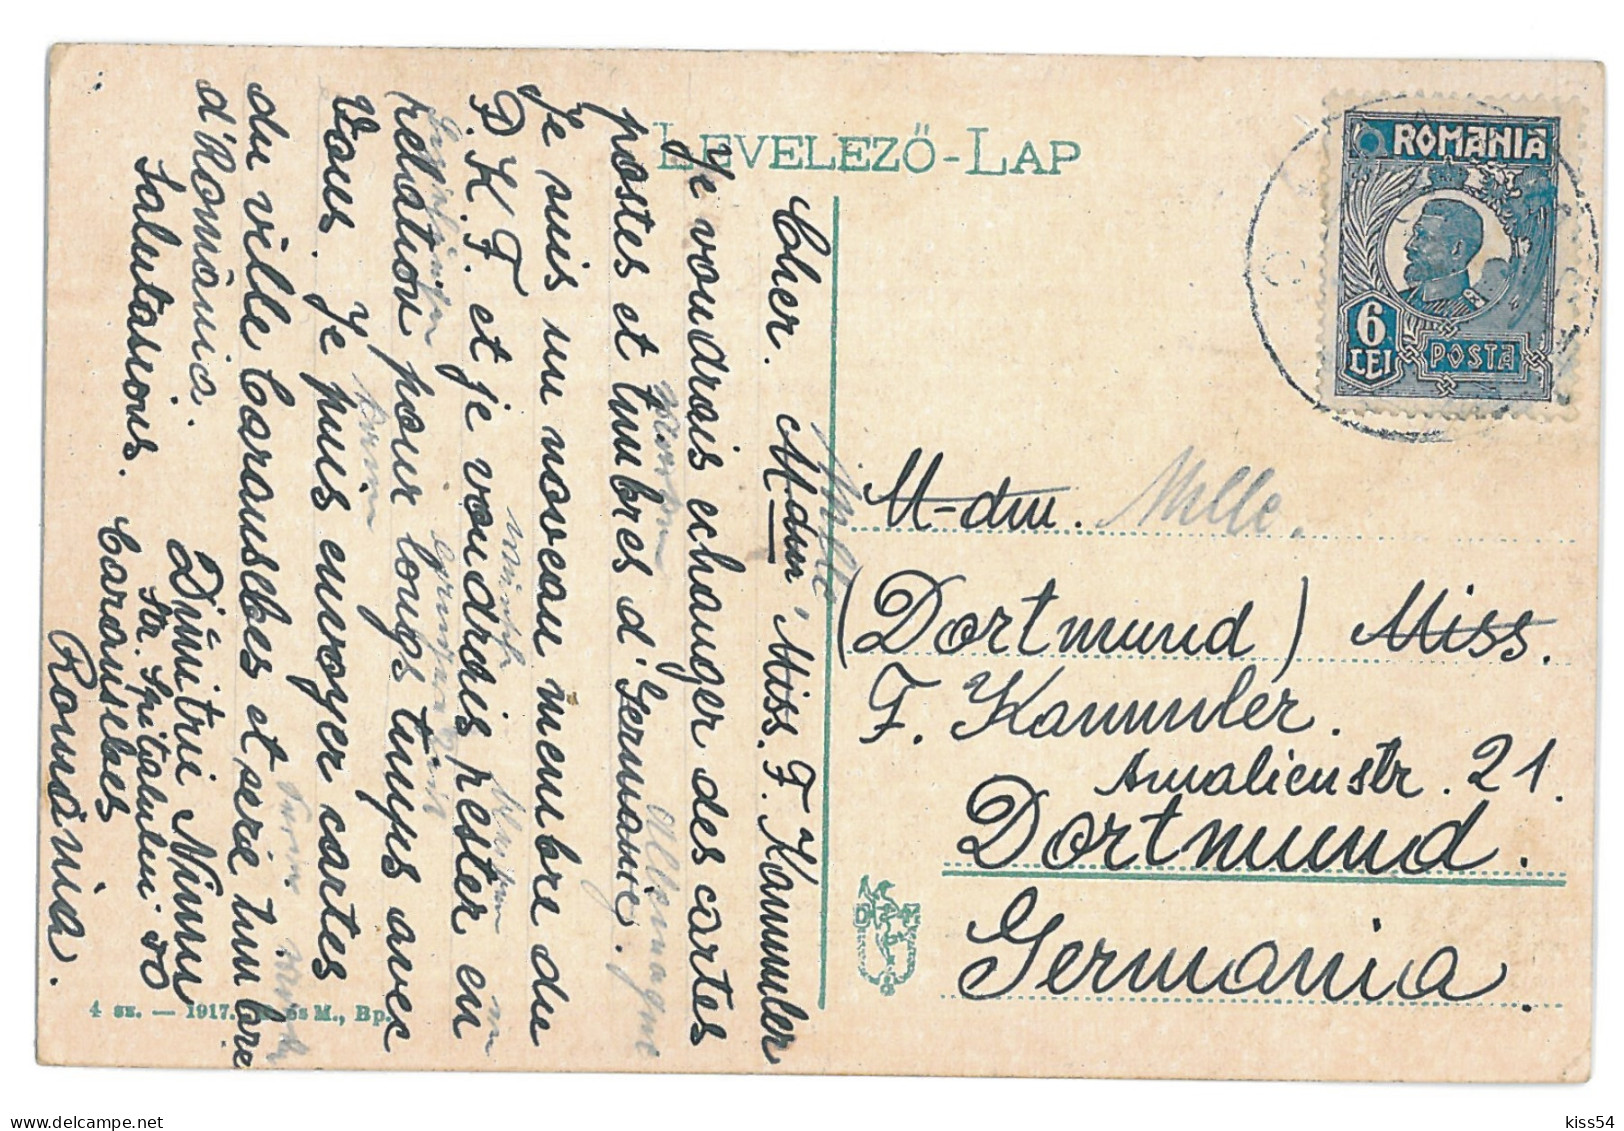 LEVELEZŐ-LAP
ROMANIA
6
LEI
POSTA
Cher. M-dm, Miss. F. Kammler
Mlle
Je voudrais echanger des cartes
postes et timbres d'Germanie.
Allemagne
Je suis un noveau membre du
D.K.F. et je voudrais rester en
relation pour longs tumps avec
Vous. Je puis envoyer cartes
du ville Caransebes et serie timbre
d'Românie.
Salutasions.
Dimitrie Nimu
Str. Spitalului 50
Caransebes
România.
M-dm. Mlle.
(Dortmund) Miss.
F. Kammler.
Amalienstr. 21.
Dortmund.
Germania.
4 sz. — 1917. és M., Bp.
kiss54